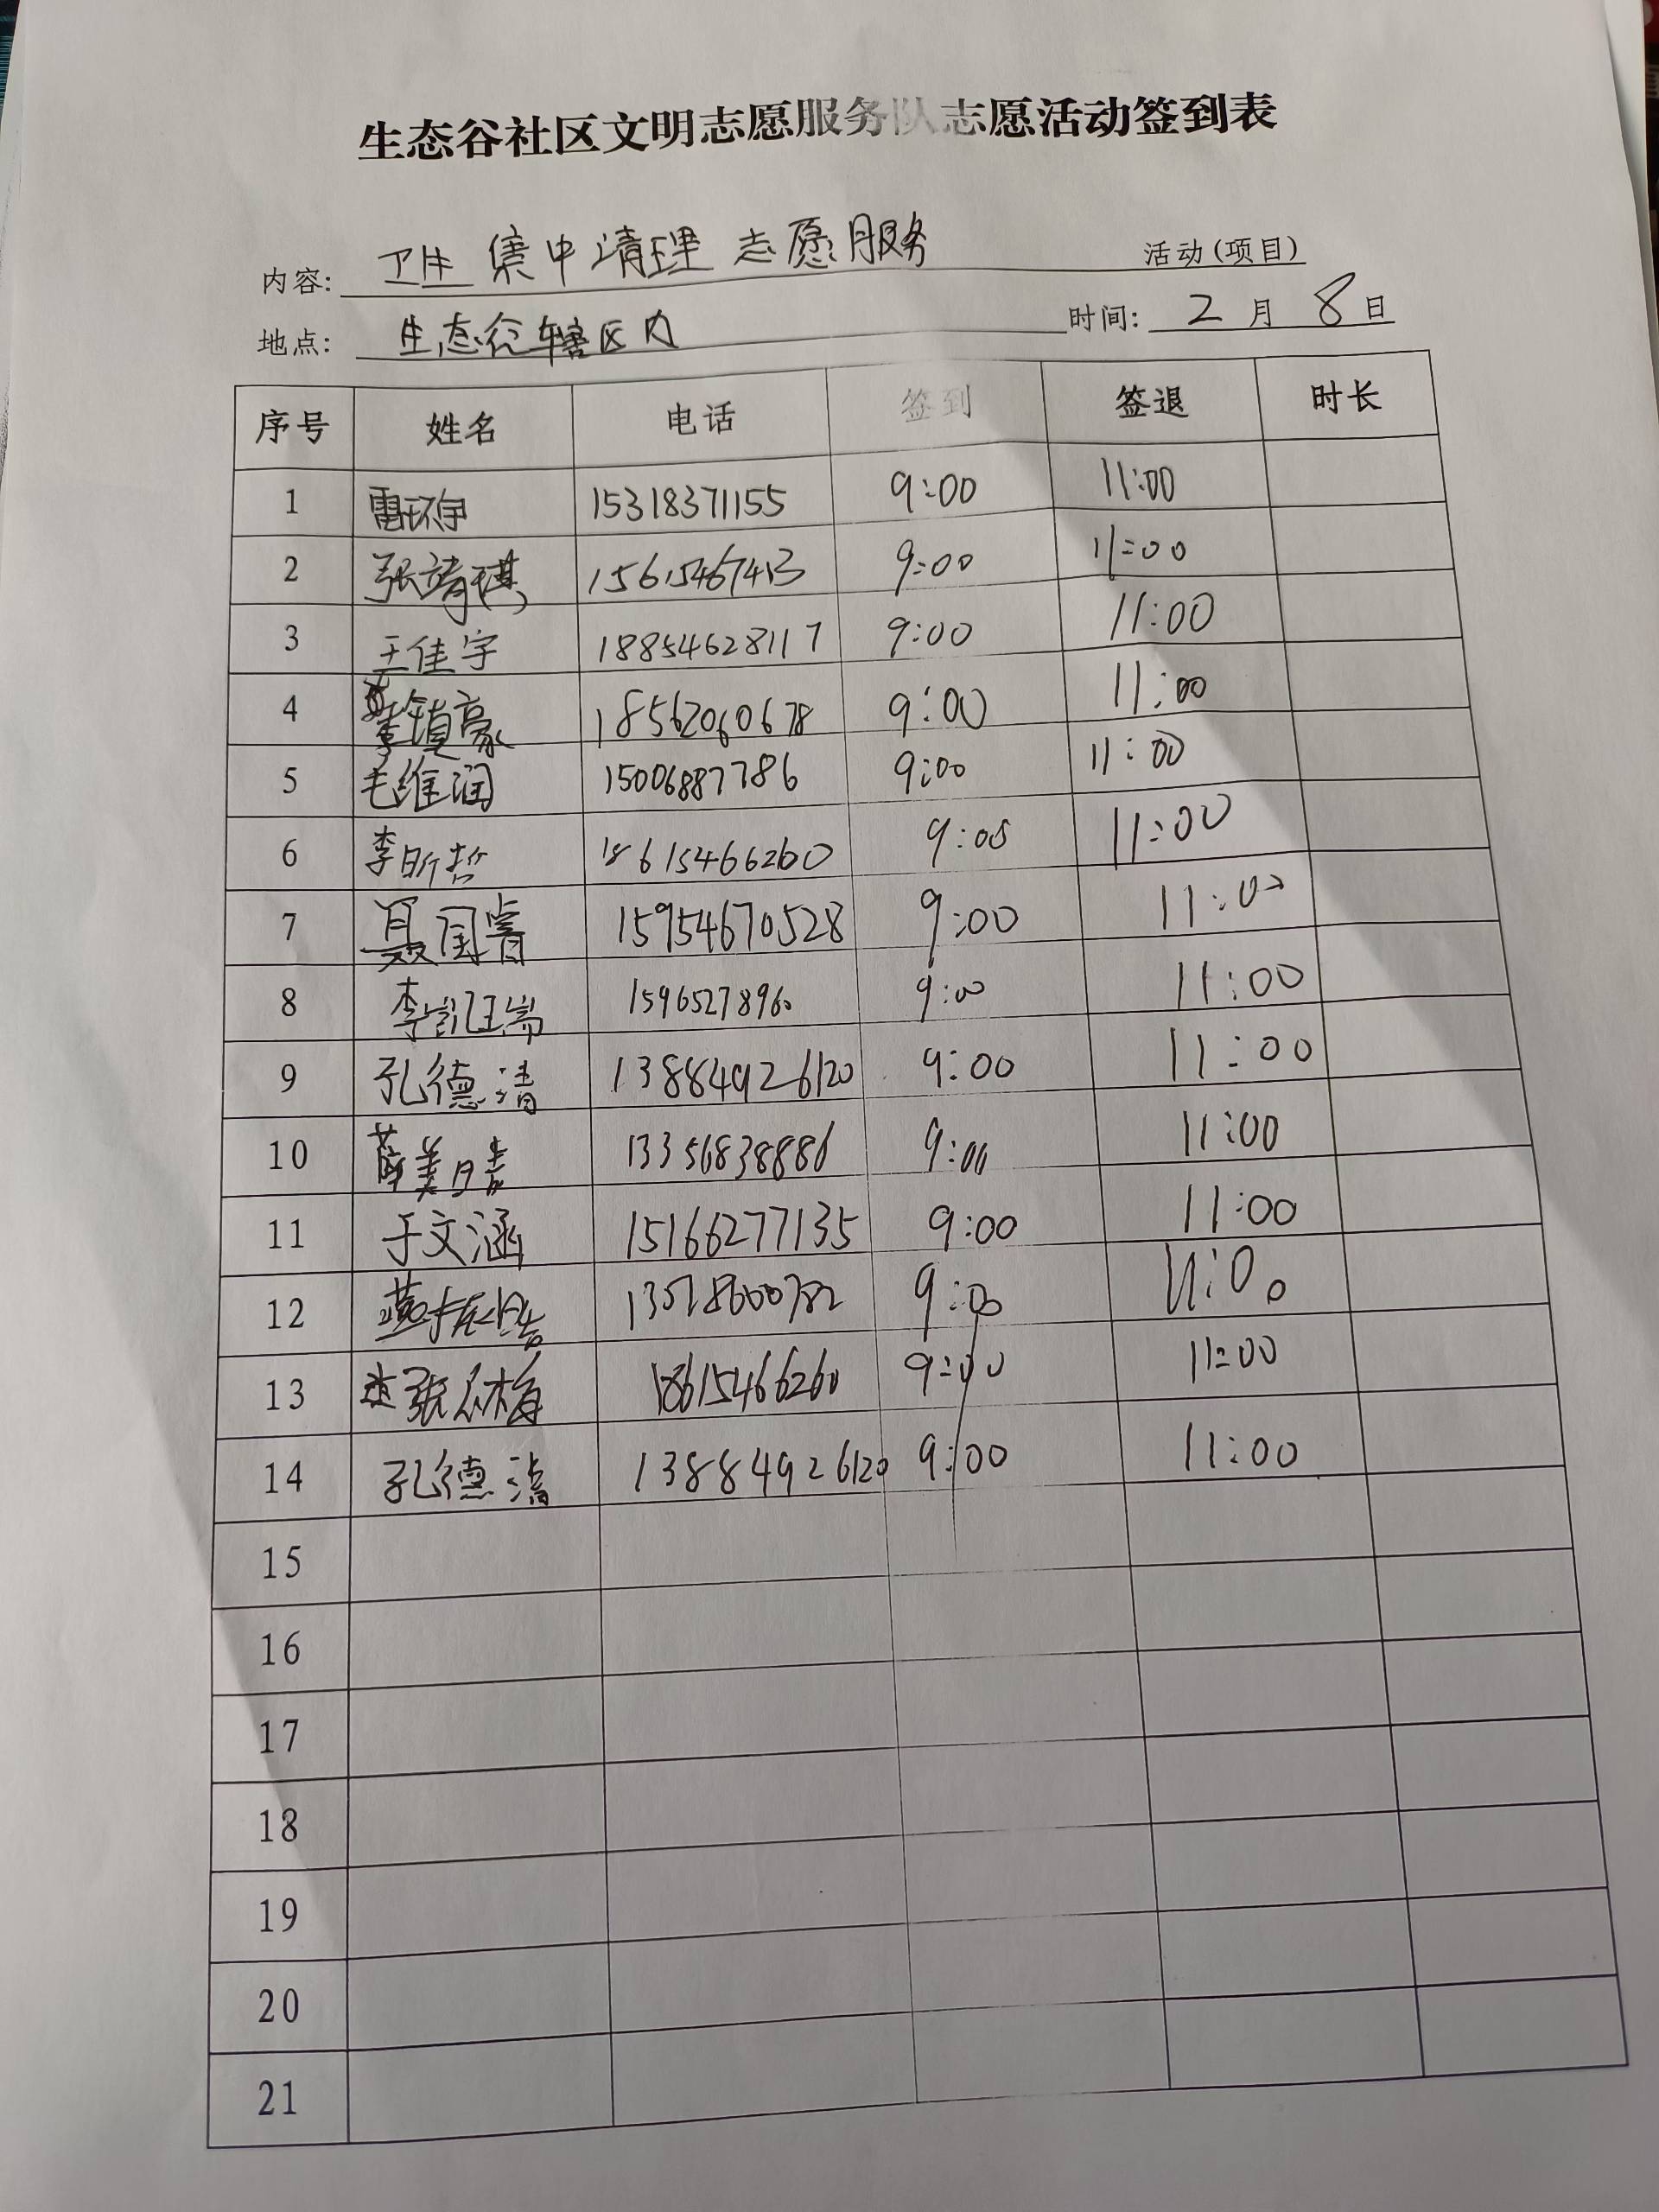 生态谷社区文明志愿服务队志愿活动签到表
内容: 卫生集中清理志愿服务 活动(项目)
地点: 生态谷辖区内 时间: 2月8日
序号 姓名 电话 签到 签退 时长
1 雷环宇 15318371155 9:00 11:00
2 张靖琪 15615467413 9:00 11:00
3 王佳宇 18854628117 9:00 11:00
4 董镇豪 18562060678 9:00 11:00
5 毛维润 15006887786 9:00 11:00
6 李昕哲 18615466260 9:00 11:00
7 聂国睿 15954670528 9:00 11:00
8 李凯瑞 15965278960 9:00 11:00
9 孔德清 13884926120 9:00 11:00
10 薛美 13356838886 9:00 11:00
11 于文涵 15166277135 9:00 11:00
12 9:00 11:00
13 张 18615466260 9:00 11:00
14 孔德清 13884926120 9:00 11:00
15
16
17
18
19
20
21